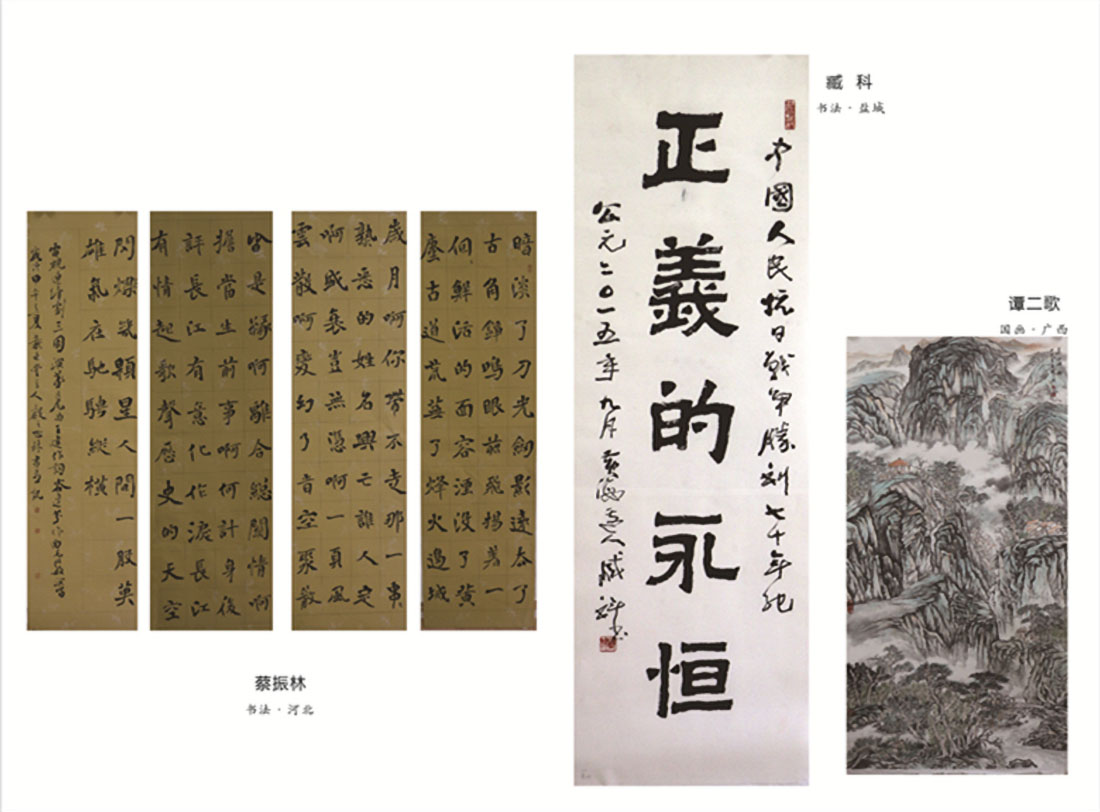 暗淡了刀光劍影遠去了
古角錚鳴眼前飛揚著一
個鮮活的面容湮没了黄
塵古道荒蕪了烽火邊城
歲月啊你帶不走那一串
熟悉的姓名興亡誰人定
啊盛衰豈無憑啊一頁風
雲散啊變幻了音空聚散
皆是緣啊離合總關情啊
擔當生前事啊何計身後
評長江有意化作淚長江
有情起歌聲歷史的天空
閃爍幾顆星人間一股英
雄氣在馳騁縱横
蔡振林
书法·河北
中國人民抗日戰爭勝利七十年紀
正義的永恒
公元二〇一五年九月黄海
臧科
书法·盐城
谭二歌
国画·广西